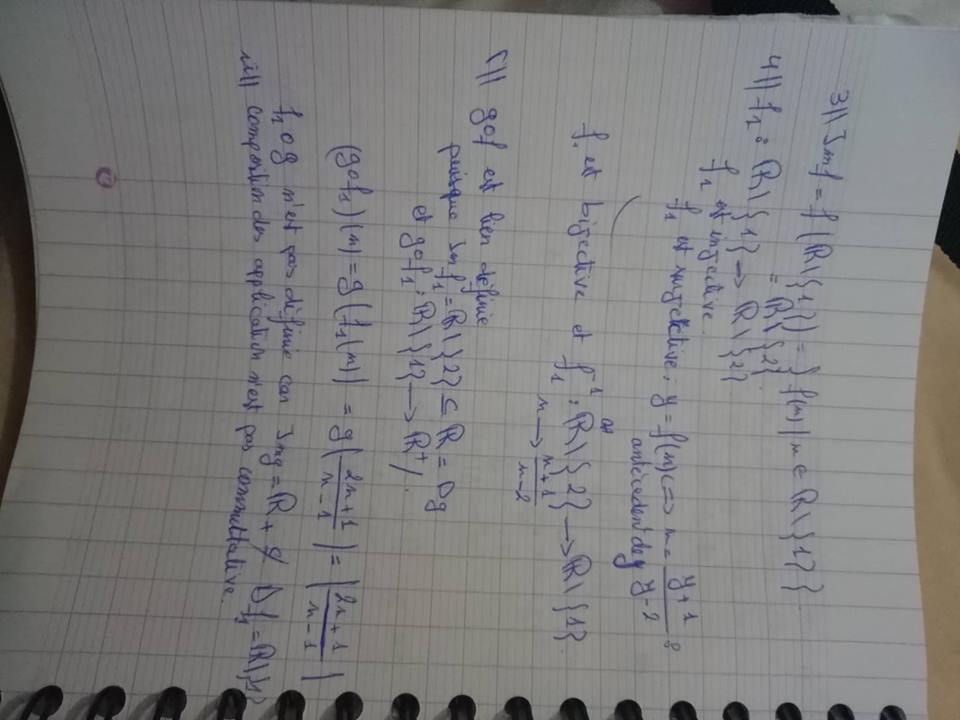 3// Imf = f(ℝ\{1}) = {f(x) | x ∈ ℝ\{1}}
= ℝ\{2}
4// f₁ : ℝ\{1} → ℝ\{2}
f₁ est injective.
f₁ est surjective, y = f(x) ⟺ x = (y+1)/(y-2) :
antécédent de y
f₁ est bijective et f₁⁻¹ : ℝ\{2} → ℝ\{1}
x → (x+1)/(x-2)
5// gof est bien définie
puisque Imf₁ = ℝ\{2} ⊆ ℝ = Dg
et gof₁ : ℝ\{1} → ℝ⁺/.
(gof₁)(x) = g(f₁(x)) = g((2x+1)/(x-1)) = |(2x+1)/(x-1)|
f₁og n'est pas définie car Img = ℝ₊ ⊄ Df₁ = ℝ\{1}
composition des application n'est pas commutative.